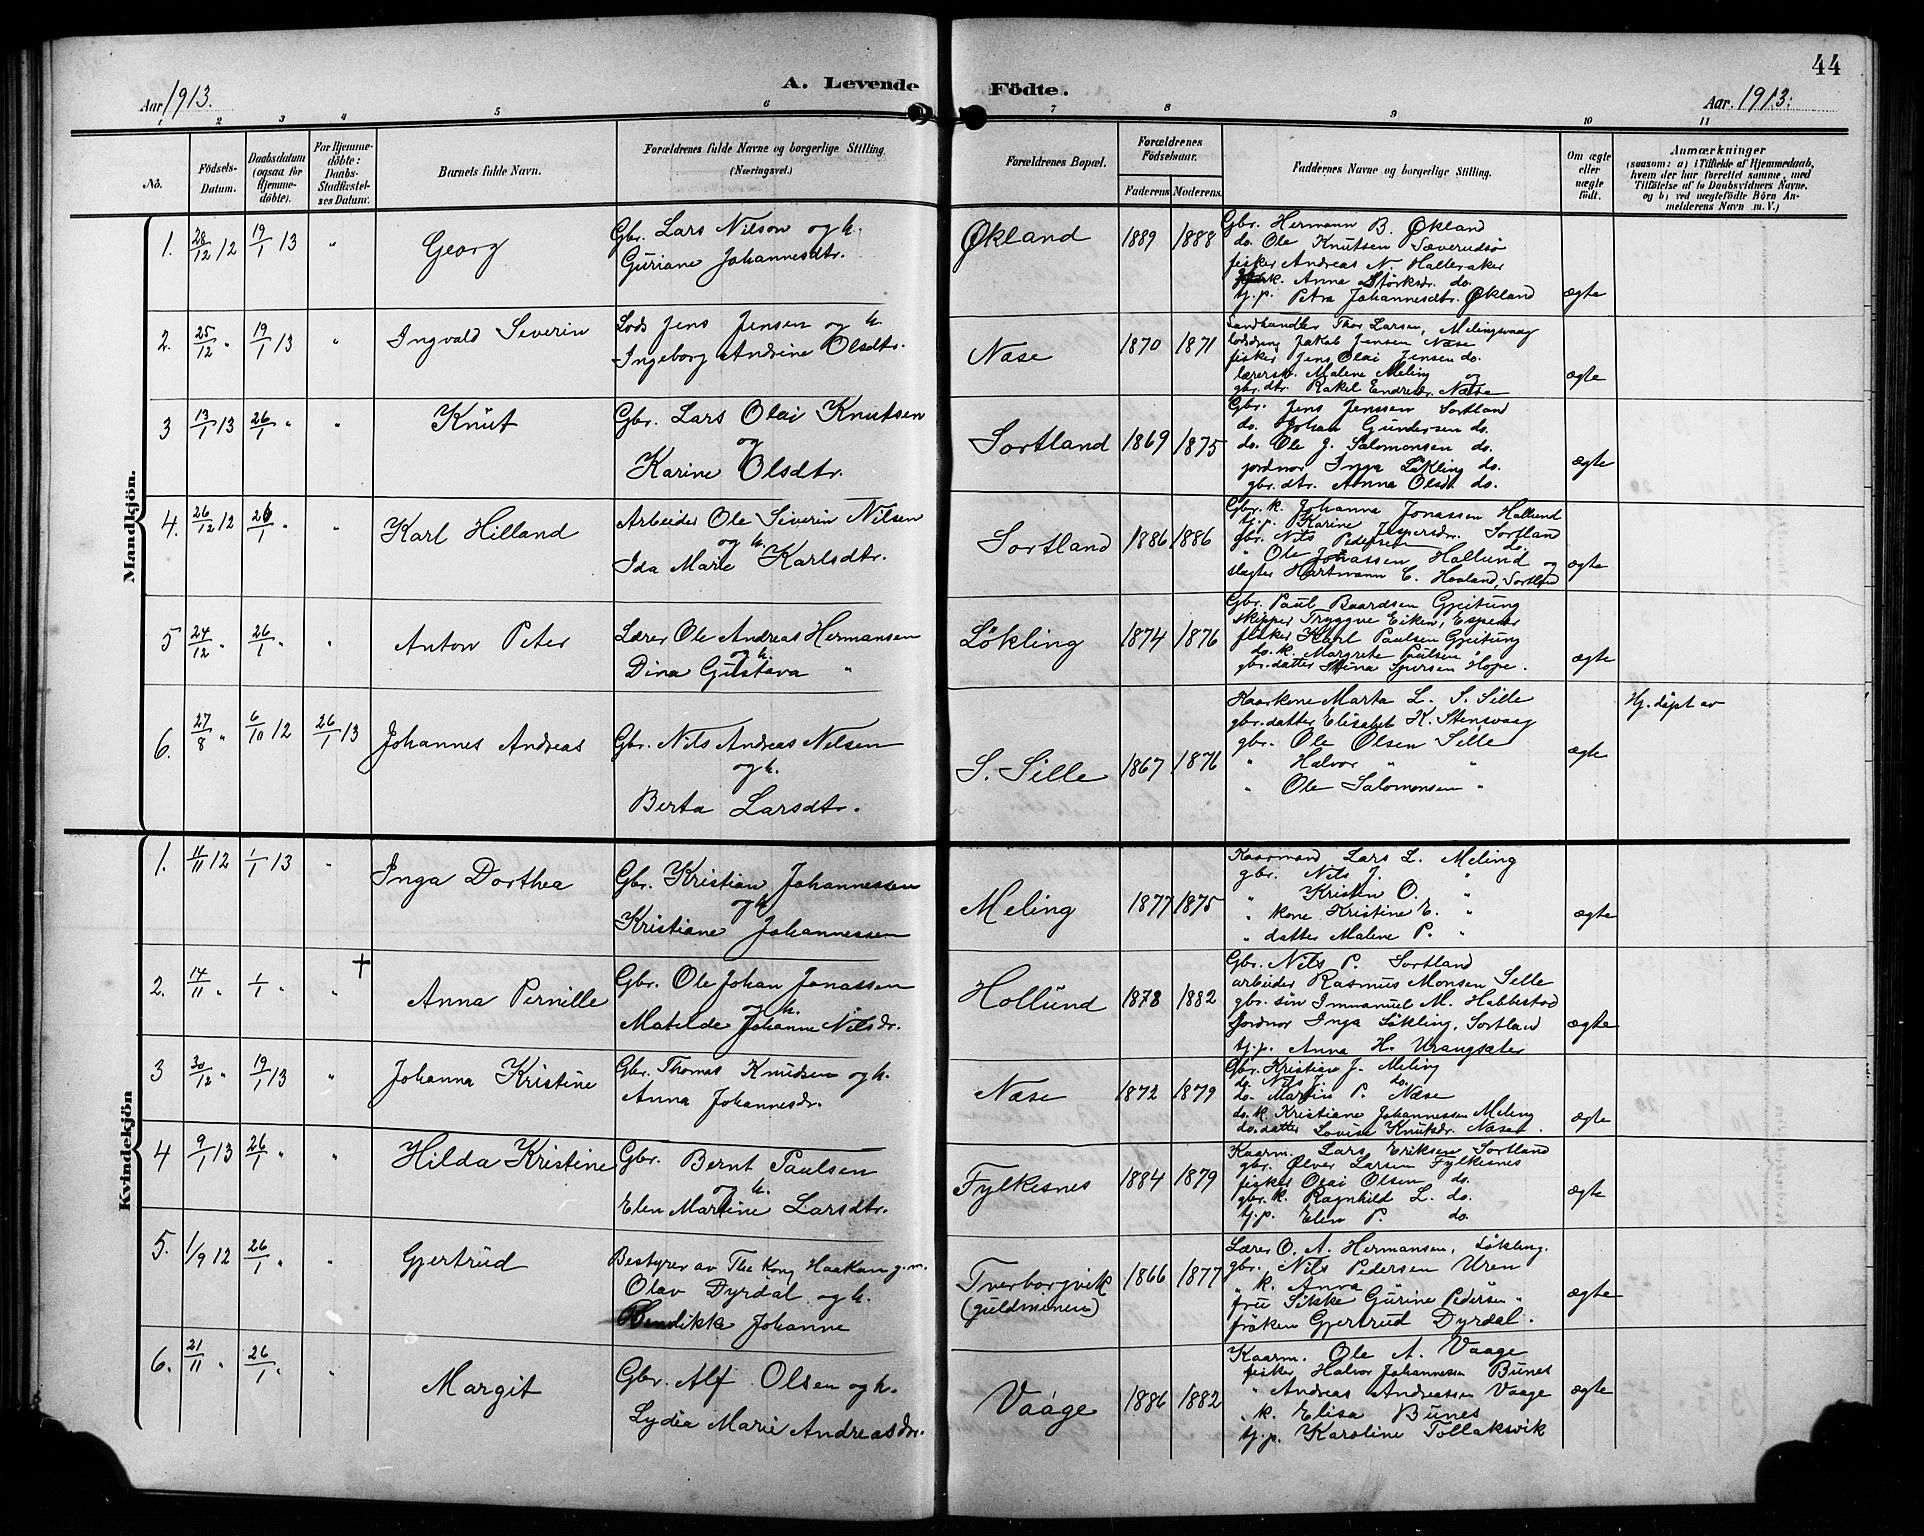 44
Aar 1913.
A. Levende Födte.
Aar 1913.
1 2 3 4 5 6 7 8 9 10 11
No.
Födsels-Datum.
Daabsdatum (ogsaa for Hjemmedöbte).
For Hjemmedöbte: Daabs-Stadfæstelses Datum.
Barnets fulde Navn.
Forældrenes fulde Navne og borgerlige Stilling
(Næringsvei.)
Forældrenes Bopæl.
Forældrenes Födselsaar.
Faderens Moderens
Faddernes Navne og borgerlige Stilling.
Om ægte eller uægte födt.
Anmærkninger
(saasom: a) i Tilfælde af Hjemmedaab, hvem der har forrettet samme, med Tilföielse af to Daabsvidners Navne, og b) ved uægtefödte Börn Anmelderens Navn m. V.)
Mandkjön.
1. 28/12 12 19/1 13 " Georg
Gbr. Lars Nilson og h.
Guriane Johannesdtr.
Økland 1889 1888
Gbr. Hermann B. Økland
do. Ole Knutsen Sæverudsø
fisker Andreas N. Halleraker
k. Anna Størksdr. do.
tj.p. Petra Johannesdtr. Økland ægte
2. 25/12 " 19/1 13 " Ingvald Severin
Lods Jens Jensen og h
Ingeborg Andrine Olsdtr.
Næse 1870 1871
Landhandler Thor Larsen, Melingsvaag
lodsdreng Jakob Jensen Næse
fisker Jens Olai Jensen do.
lærersk. Malene Meling og
gbr. dtr. Rakel Endresdr. Næse ægte
3 13/1 13 26/1 " " Knut
Gbr. Lars Olai Knutsen
og
Karine Olsdtr.
Sortland 1869 1875
Gbr. Jens Jenssen Sortland
do. Johan Gundersen do.
do. Ole J. Salomonsen do.
jordmor Inga Løkling do.
gbr. dtr. Anna Olsdt. do. ægte
4. 26/12 12 26/1 " " Karl Hilland
Arbeider Ole Severin Nilsen
og h.
Ida Marie Karlsdtr.
Sortland 1886 1886
Gbr. k. Johanna Jonassen Hallund
tj.p. Karine Jespersdr. Sortland
gbr. Nils Pedersen do.
" Ole Jonassen Hallund og
slagter Hartmann C. Haaland, Sortland ægte
5 24/12 " 26/1 " " Anton Peter
Lærer Ole Andreas Hermansen
og h.
Dina Gustava "
Løkling 1874 1876
Gbr. Paul Baardsen Gjeitung
skipper Tryggve Eiken, Espevær
fisker Karl Paulsen Gjeitung
do. k. Margrete Paulsen "
gbr. datter Stina Spersen Hope. ægte
6. 27/8 " 6/10 12 26/1 13 Johannes Andreas
Gbr. Nils Andreas Nilsen
og h.
Berta Larsdtr.
S. Sille 1867 1876
Kaarkone Marta L. S. Sille
gbr. datter Elisabet K. Stensvaag
gbr. Ole Olsen Sille
" Halvor " "
" Ole Salomonsen " ægte
Hj. døpt av
Kvindekjön
1. 11/11 12 1/1 13 " Inga Dorthea
Gbr. Kristian Johannessen
og h
Kristiane Johannessen
Meling 1877 1875
Kaarmand Lars L. Meling
gbr. Nils J. "
" Kristen O. "
" kone Kristine E. "
" datter Malene P. " ægte
2. 14/11 " 1/1 " " + Anna Pernille
Gbr. Ole Johan Jonassen
og h.
Matilde Johanne Nilsdr.
Hollund 1878 1882
Gbr. Nils P. Sortland
arbeider Rasmus Monsen Sille
gbr. søn Immanuel M. Habbestad
Jordmor Inga Løkling, Sortland
tj.p. Anna H. Vrangsæter ægte
3 30/12 " 19/1 13 " Johanna Kristine
Gbr. Thomas Knudsen og h.
Anna Johannesdr.
Næse 1872 1879
Gbr. Kristian J. Meling
do. Nils J. do.
do. Martin P. Næse
do. k. Kristiane Johannessen Meling
do. datter Lovise Knutsdr. Næse. ægte
4 9/1 13 26/1 " " Hilda Kristine
Gbr. Bernt Paulsen
og h.
Elen Martine Larsdtr.
Fylkesnes 1884 1879
Kaarm. Lars Eriksen Sortland
gbr. Ølver Larsen Fylkesnes
fisker Olai Olsen do.
gbr. k. Ragnhild L. do.
tj.p. Elen P. do. ægte
5. 1/9 12 26/1 " " Gjertrud
Bestyrer av The Kong Haakon g.m.
Olav Dyrdal og h.
Bendikke Johanne
Tverborgvik
(guldminen) 1866 1877
Lærer O. A. Hermansen, Løkling.
gbr. Nils Pedersen Uren
" k. Anna "
fru Sikke Gurine Pedersen "
frøken Gjertrud Dyrdal. ægte
6. 21/11 " 26/1 " " Margit
Gbr. Alf Olsen og h.
Lydia Marie Andreasdr.
Vaage 1886 1882
Kaarm. Ole A. Vaage
fisker Halvor Johannessen Bunes
" Andreas Andreassen Vaage
" k. Elisa Bunes
tj.p. Karoline Tollaksvik ægte